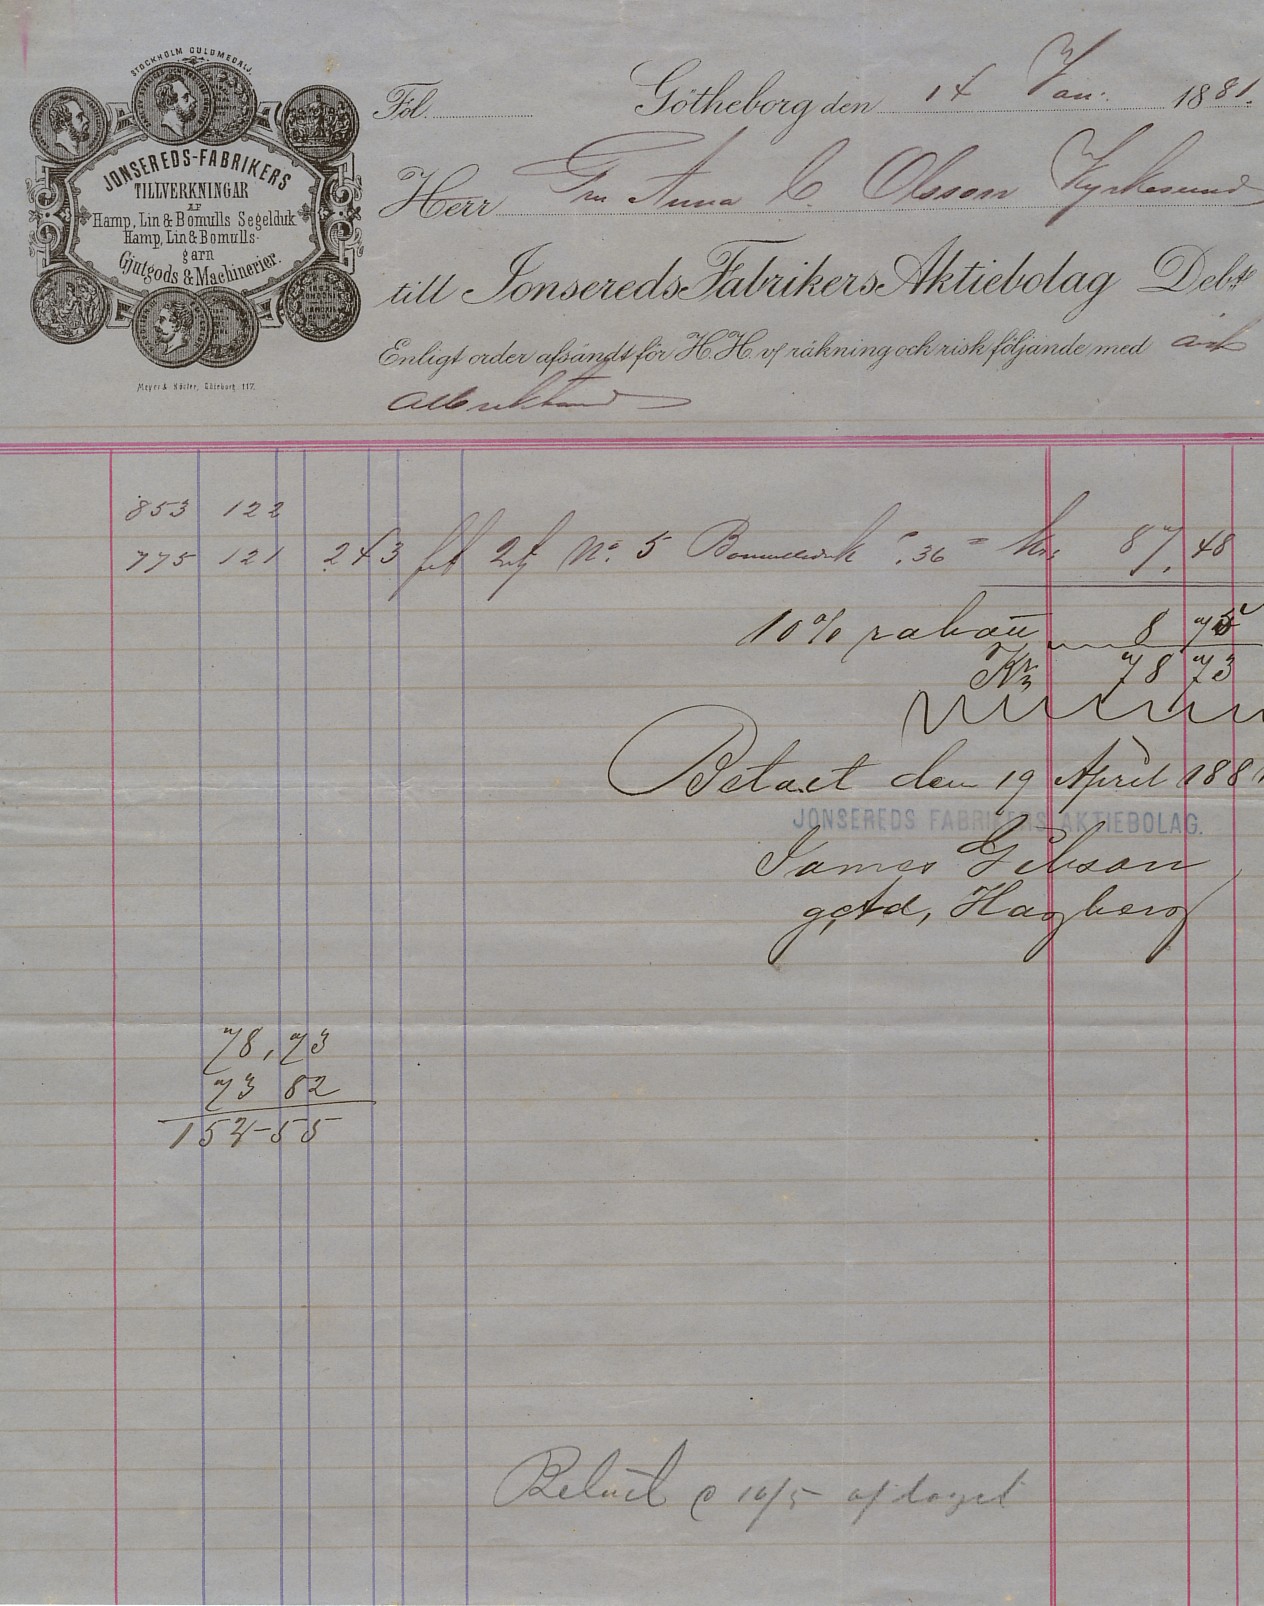 STOCKHOLM GULDMEDALJ.
JONSEREDS-FABRIKERS
TILLVERKNINGAR
AF
Hamp, Lin & Bomulls Segelduk
Hamp, Lin & Bomulls-
garn
Gjutgods & Machinerier.
Meyer & Köster, Göteborg. 117.
Fol.
Götheborg den 14 Jan. 1881.
Herr Fru Anna C. Olsson Kyrkesund
till Jonsereds Fabrikers Aktiebolag Debt
Enligt order afsändt för H.H. v/ räkning och risk följande med
853 122
775 121 243 fot 24 No. 5 Bomullsduk ".36 = Kr. 87.48
10% rabatt 8 75
Kr 78 73
Betalt den 19 April 1881
JONSEREDS FABRIKERS AKTIEBOLAG.
James Gibson
gm Ad, Hagberg
78,73
73 82
152-55
Betalt 16/5 aftaget